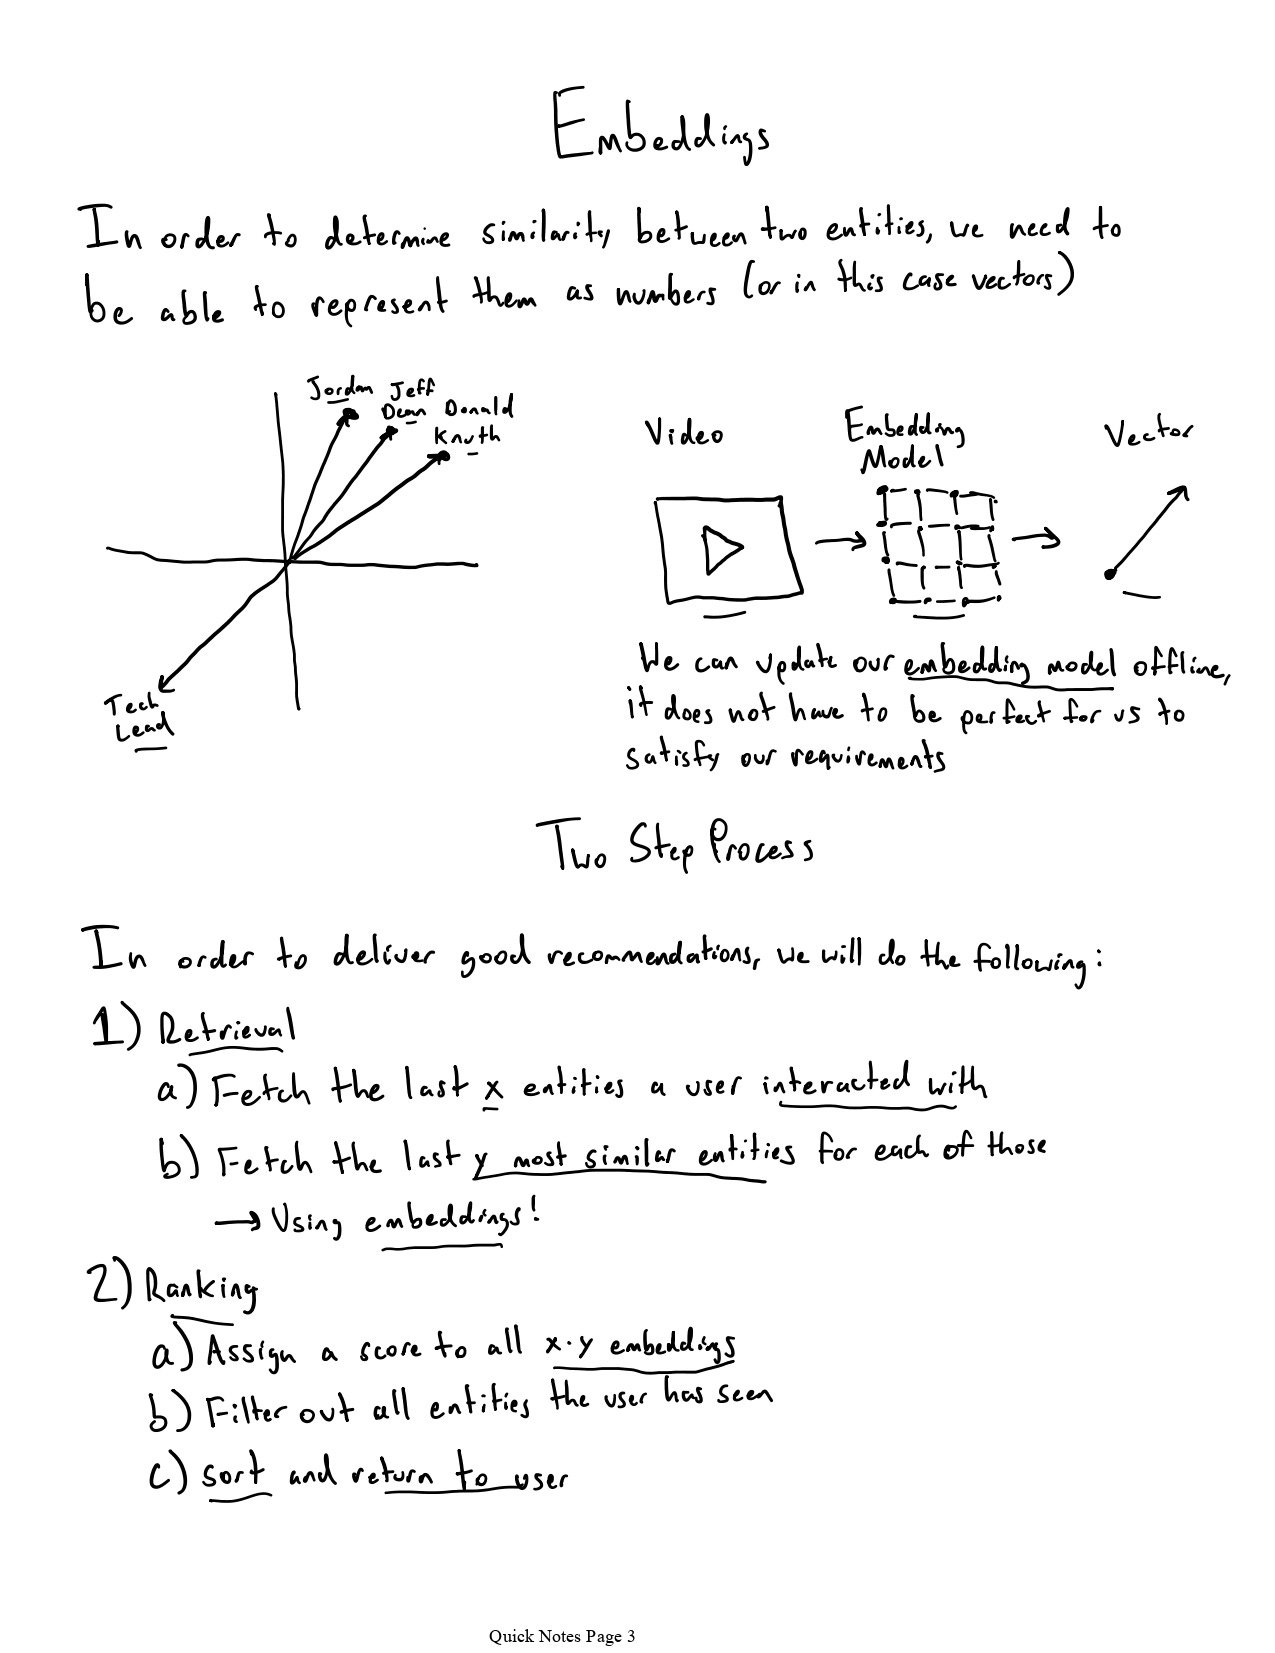 Embeddings
In order to determine similarity between two entities, we need to
be able to represent them as numbers (or in this case vectors)
Jordan
Jeff
Dean
Donald
Knuth
Tech
Lead
Video
Embedding
Model
Vector
We can update our embedding model offline,
it does not have to be perfect for us to
satisfy our requirements
Two Step Process
In order to deliver good recommendations, we will do the following:
1) Retrieval
a) Fetch the last x entities a user interacted with
b) Fetch the last y most similar entities for each of those
→ Using embeddings!
2) Ranking
a) Assign a score to all x·y embeddings
b) Filter out all entities the user has seen
c) sort and return to user
Quick Notes Page 3